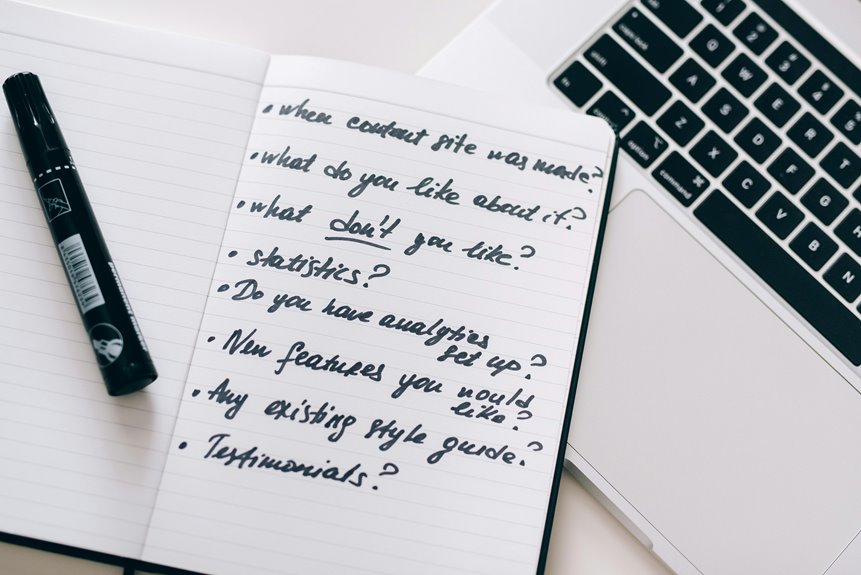 • when content site was made?
• what do you like about it?
• what don't you like?
• statistics?
• Do you have analytics
set up?
• New features you would
like?
• Any existing style guide?
• Testimonials?
1 2 3 4 5
Q W E R T
caps lock A S D F G H
shift Z X C V B N
fn option command